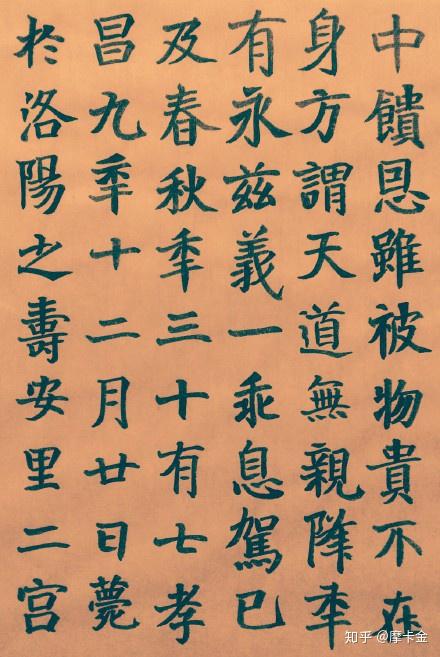 中饋恩雖被物貴不在
身方謂天道無親降年
有永兹義一乖息駕已
及春秋年三十有七孝
昌九年十二月廿日薨
於洛陽之壽安里二宫
知乎 @摩卡金